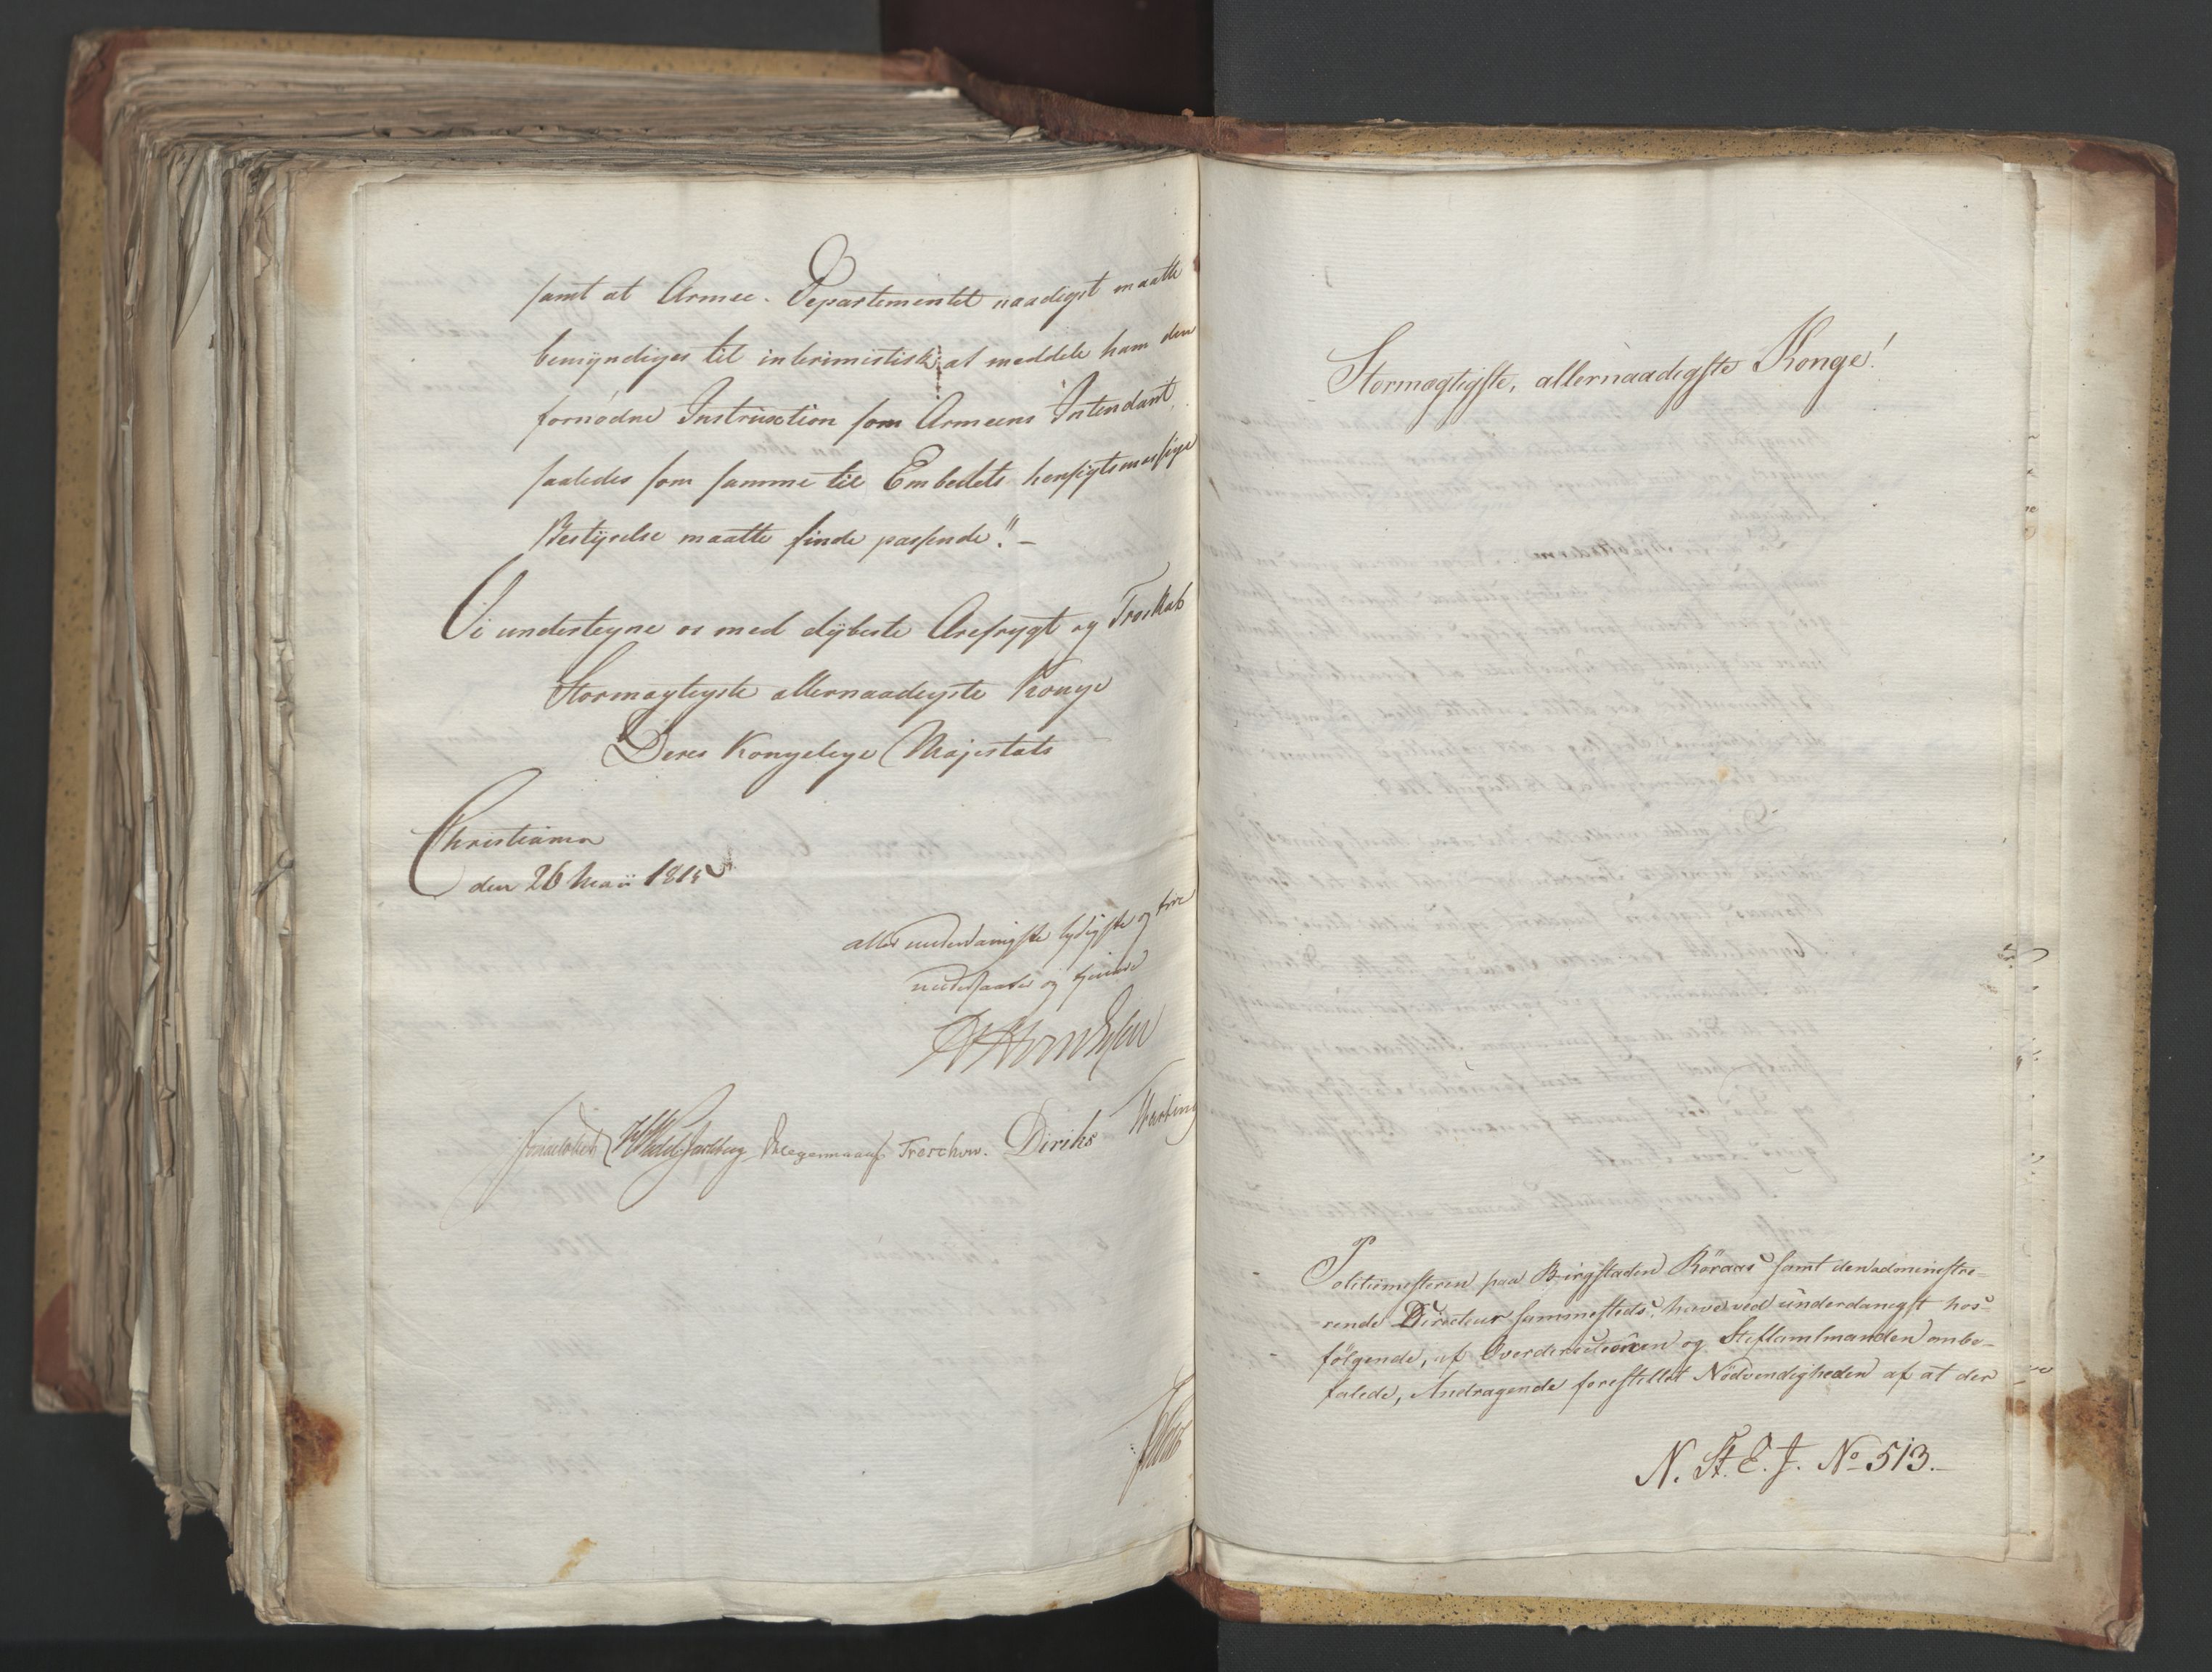 samt at Armee-Departementet naadigst maatte
bemyndiges til interimistisk at meddele ham den
fornødne Instruction som Armeens Intendant,
saaledes som samme til Embedets hensigtsmæssige
Bestyrelse maatte finde passende". –
Vi undertegne os med dybeste Ærefrygt og Troskab
Stormægtigste allernaadigste Konge
Deres Kongelige Majestæts
Christiania
den 26 Maii 1815
allerunderdanigste lydigste og troe
undersaatter og tjenere
Sommerhielm Wedel Jarlsberg Krogh Treschow. Diriks
Stormægtigste, allernaadigste Konge!
Politiemesteren paa Bergstaden Röraas samt den administre-
rende Directeur sammesteds have ved underdanigst hos-
følgende, af Overdirectionen og Stiftamtmanden anbe-
falede, Andragende forestillet Nødvendigheden af at der
N. St. E. J. No 513. –